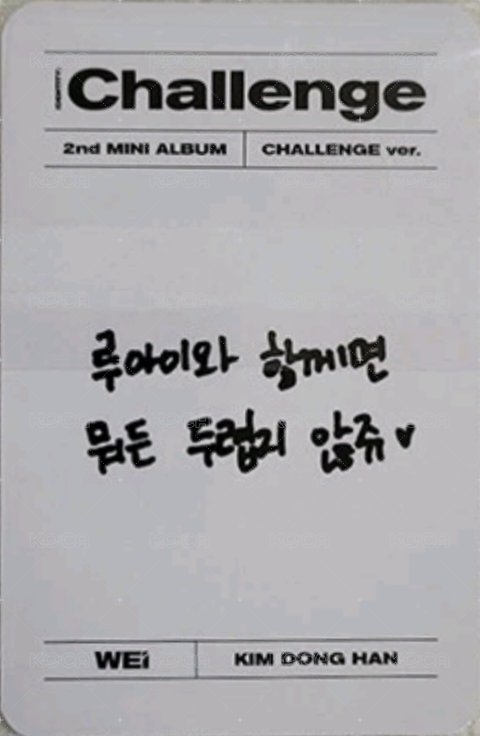 IDENTITY:
Challenge
2nd MINI ALBUM
CHALLENGE ver.
루아이와 함께면
뭐든 두렵지 않쥬♥
WEi
KIM DONG HAN